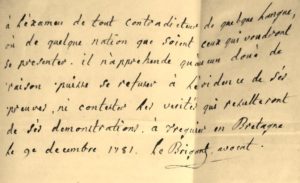 à l'éxamen de tout contradicteur de quelque langue,
ou de quelque nation que soient ceux qui voudront
se presenter. il n'apprehende qu'aucun doué de
raison puisse se refuser à l'evidence de ses
preuves, ni contester des verités qui resulteront
de ses demonstrations. à treguier en Bretagne
le 9e decembre 1781. Le Brigant, avocat.